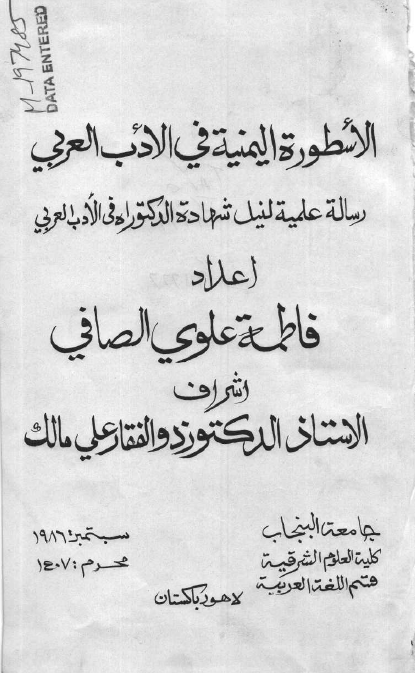 M-197485
DATA ENTERED
الأسطورة اليمنية في الأدب العربي
رسالة علمية لنيل شهادة الدكتوراه في الأدب العربي
اعداد
فاطمة علوي الصافي
اشراف
الاستاذ الدكتور ذوالفقار علي مالك
جامعة البنجاب
كلية العلوم الشرقية
قسم اللغة العربية
لاهور باكستان
سبتمبر: ١٩٨٦
محرم: ١٤٠٧